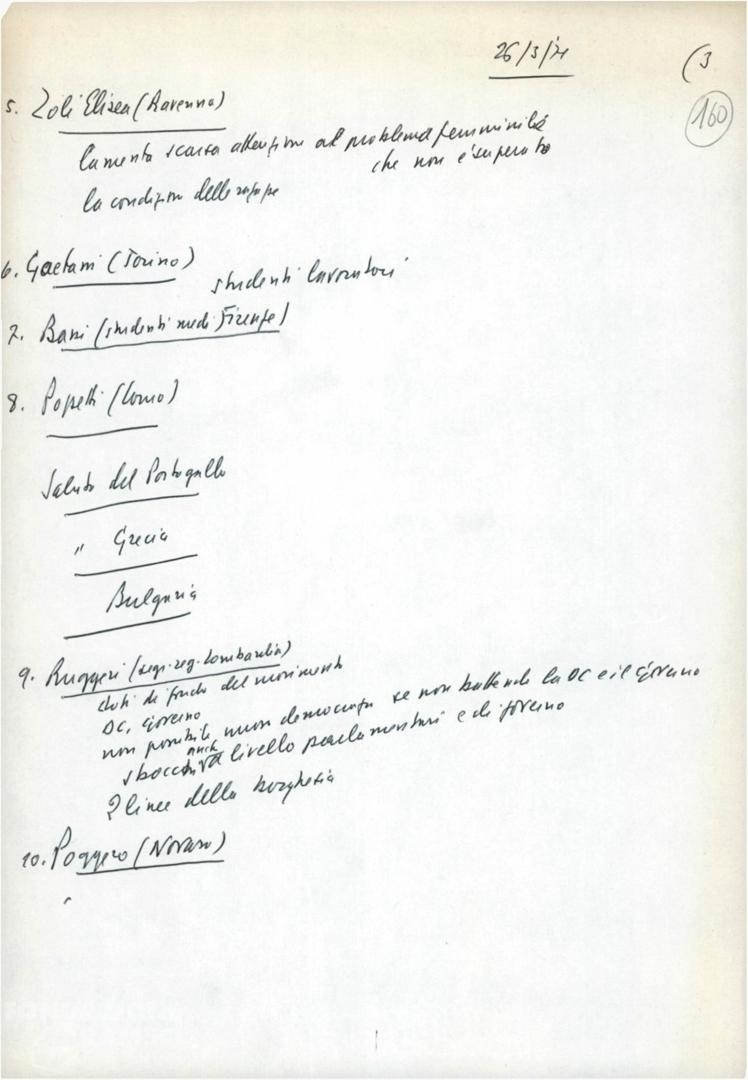 26/3/71
(3
160
5. Zoli Elisea (Ravenna)
lamenta scarsa attenzione al problema femminile
che non è superato
la condizion delle ragazze
6. Gaetani (Torino)
studenti lavoratori
7. Bani (studenti medi Firenze)
8. Popetti (Como)
Saluto del Portogallo
" Grecia
Bulgaria
9. Ruggeri (segr. reg. Lombardia)
di fondo del movimento
DC, governo
non possibile nuova democrazia se non battendo la DC e il governo
anch
livello parlamentari e di governo
2 linee della borghesia
10. Poggero (Novara)